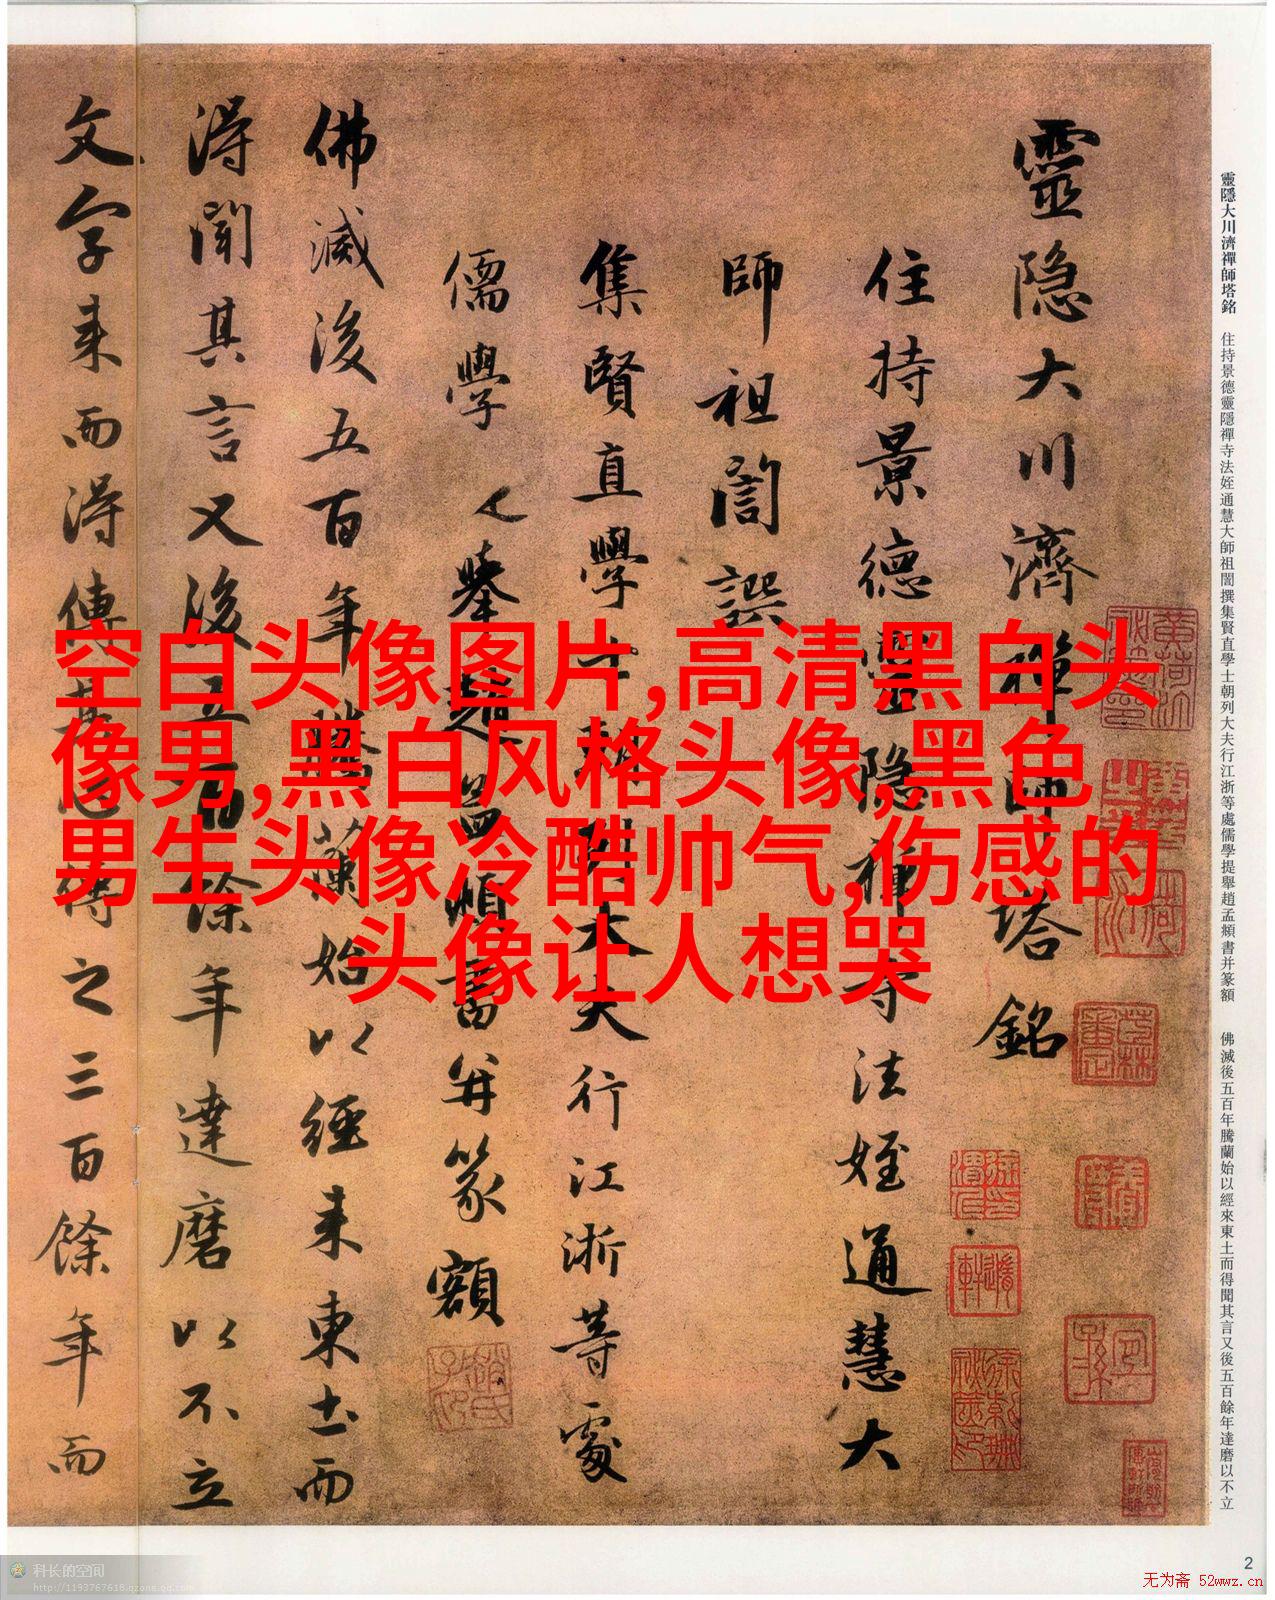 靈隐大川濟禪師塔銘
住持景德靈隐禪寺法姪通慧大
師祖誾譔
集賢直學士朝列大夫行江浙等處
儒學提舉趙孟頫書并篆額
佛滅後五百年騰蘭始以經来東土而
得聞其言又後五百餘年達磨以不立
文字来而得傳其
之三百餘年而
靈隱大川濟禪師塔銘 住持景德靈隱禪寺法姪通慧大師祖誾撰集賢直學士朝列大夫行江浙等處儒學提舉趙孟頫書并篆額 佛滅後五百年騰蘭始以經來東土而得聞其言又後五百餘年達磨以不立
空白头像图片,高清黑白头
像男,黑白风格头像,黑色
男生头像冷酷帅气,伤感的
头像让人想哭
科长的空间
http://1193767618.qzone.qq.com
2
无为斋 52wwz.cn